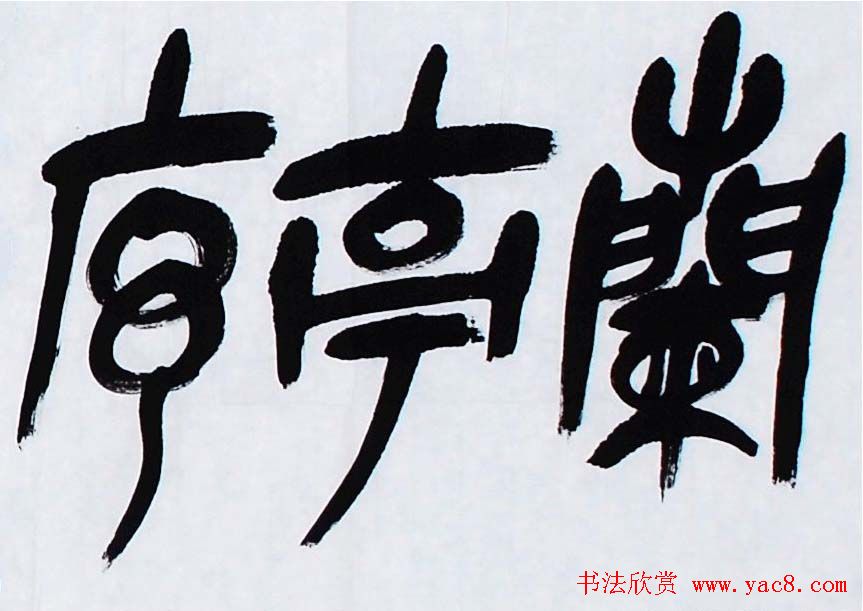 蘭亭序
书法欣赏 www.yac8.com